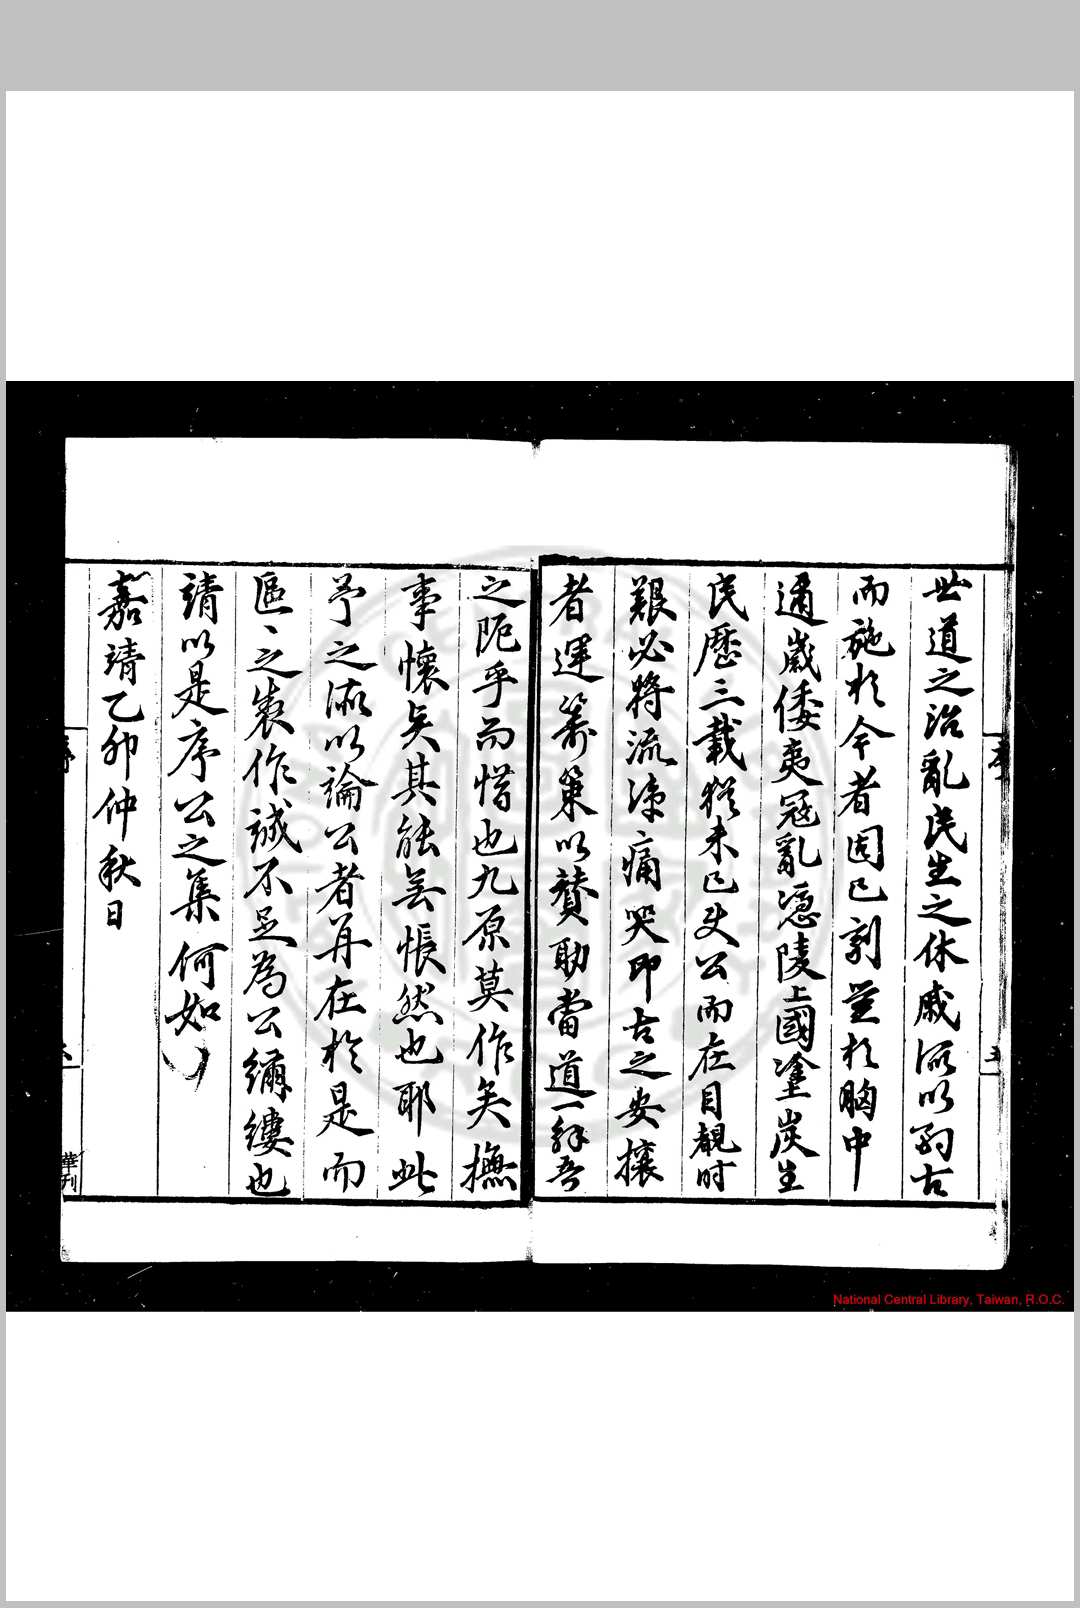 世道之治亂民生之休戚所以酌古
而施於今者固已劃莖於胸中
邇歲倭夷寇亂憑陵上國塗炭生
民歷三載猶未已使公而在目覩时
艱必將流涕痛哭即古之安攘
者運籌策以贊助當道一紓吾
之阨乎而惜也九原莫作矣撫
事懷矣其能无悵然也耶此
予之所以論公者并在於是而
區〻之衷作誠不足為公繃縷也
請以是序公之集何如
嘉靖乙卯仲秋日
序
五
華刊
National Central Library, Taiwan, R.O.C.